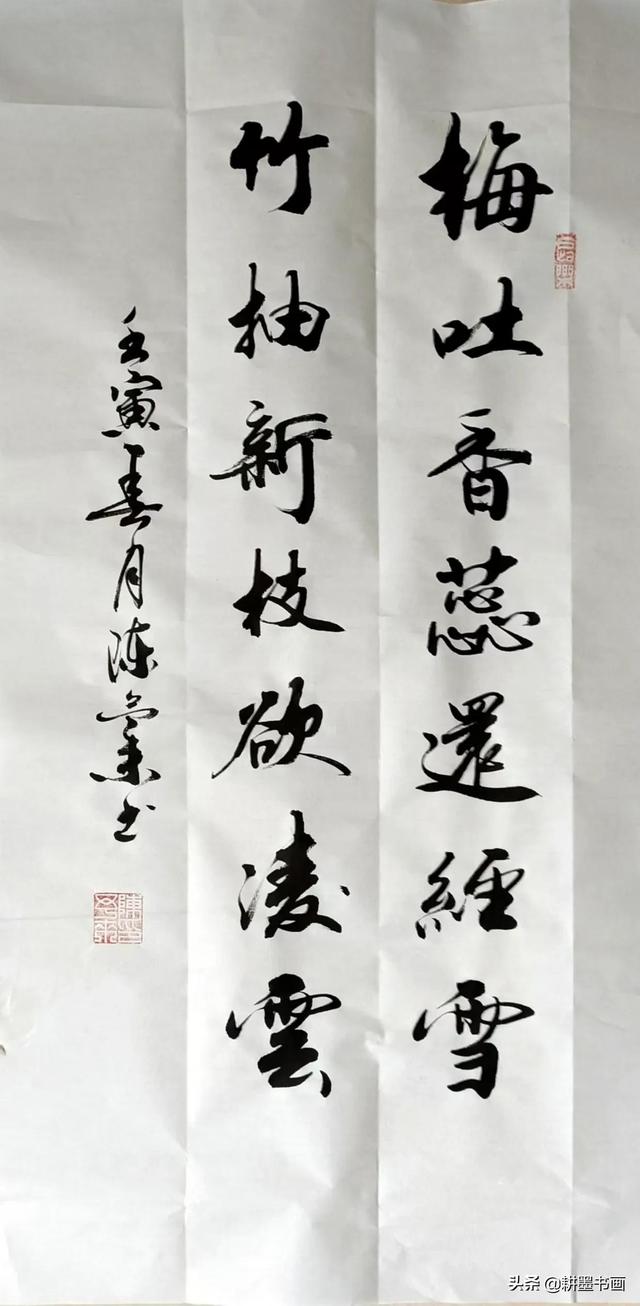 梅吐香蕊還經雪
竹抽新枝欲凌雲
壬寅春月陈業书
头条 @耕墨书画